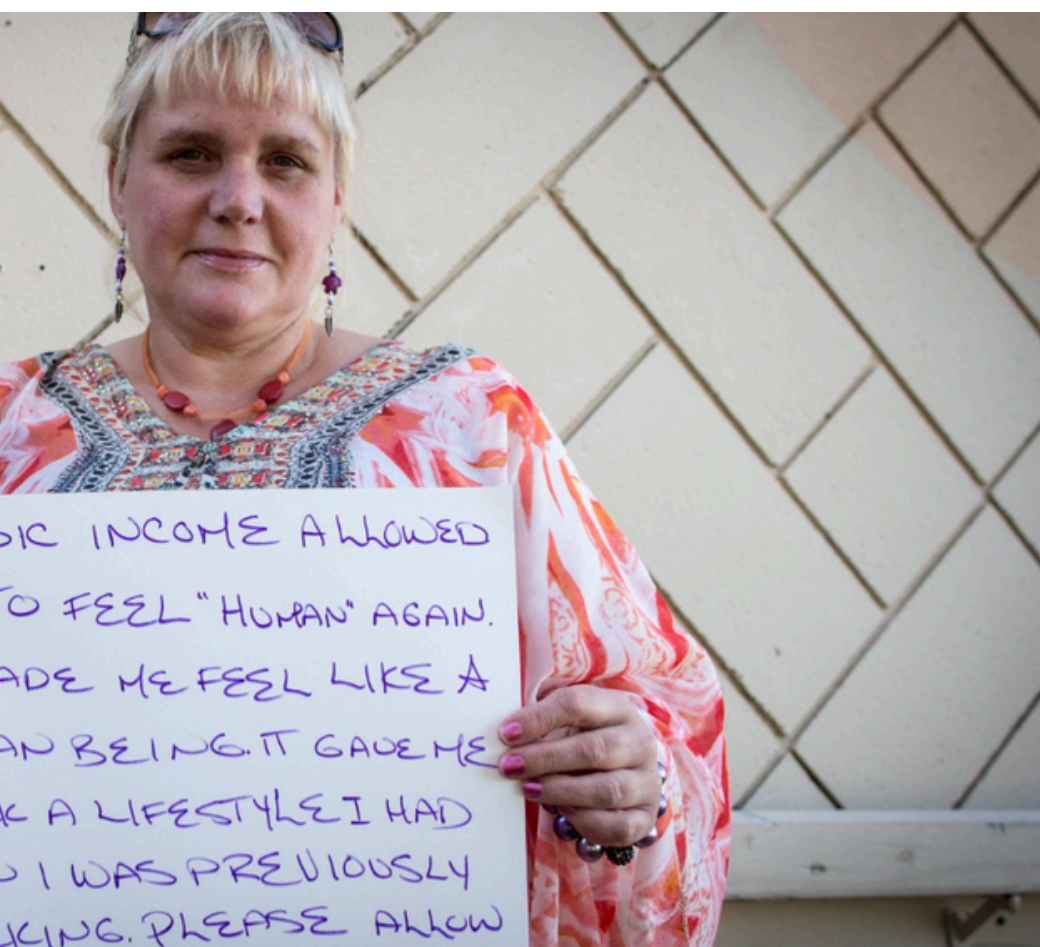 SIC INCOME ALLOWED
TO FEEL "HUMAN" AGAIN.
ADE ME FEEL LIKE A
AN BEING. IT GAVE ME
K A LIFESTYLE I HAD
I WAS PREVIOUSLY
KING. PLEASE ALLOW